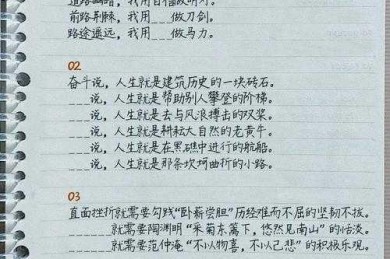 道路幽暗，我用自信做明灯。
前路荆棘，我用___做刀剑。
路途遥远，我用___做马力。
02
奋斗说，人生就是建筑历史的一块砖石。
___说，人生就是帮助别人攀登的阶梯。
___说，人生就是去与风浪搏击的双桨。
___说，人生就是耕耘大自然的老黄牛。
___说，人生就是在黑礁中进行的航船。
___说，人生就是那条坎坷曲折的小路。
03
直面挫折就需要勾践“卧薪尝胆”历经难而不屈的坚韧不拔。
___就需要陶渊明“采菊东篱下，悠然见南山”的恬淡。
___就需要范仲淹“不以物喜，不以己悲”的积极乐观。